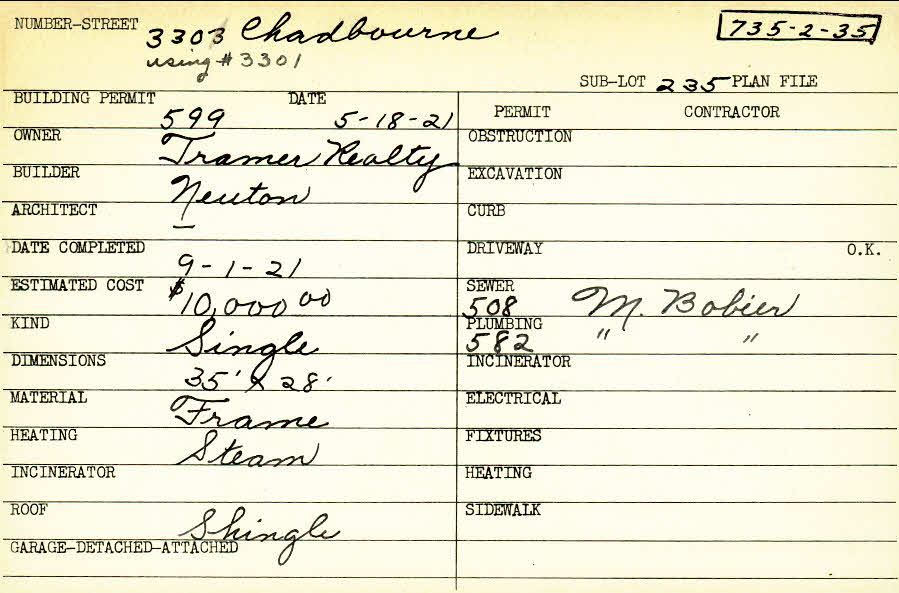 NUMBER-STREET 3303 Chadbourne 735-2-35
using #3301
SUB-LOT 235 PLAN FILE
BUILDING PERMIT DATE
599 5-18-21
OWNER Tramer Realty
BUILDER Neuton
ARCHITECT —
DATE COMPLETED 9-1-21
ESTIMATED COST $10,000 00
KIND Single
DIMENSIONS 35' X 28'
MATERIAL Frame
HEATING Steam
INCINERATOR
ROOF Shingle
GARAGE-DETACHED-ATTACHED
PERMIT CONTRACTOR
OBSTRUCTION
EXCAVATION
CURB
DRIVEWAY O.K.
SEWER
508 M. Bobier
PLUMBING
582 " "
INCINERATOR
ELECTRICAL
FIXTURES
HEATING
SIDEWALK